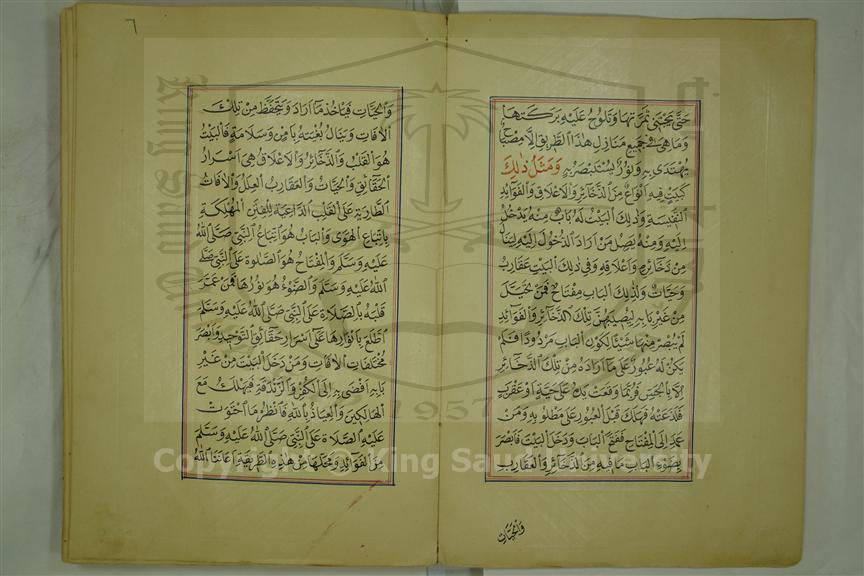 حتى يجتني ثمرتها وتلوح عليه بركتها
وما هي في جميع منازل هذا الطريق الا مصباح
يهتدى به ونور يستبصر به ومثل ذلك
كبيت فيه انواع من الذخائر والاعلاق والفوائد
النفيسة وذلك البيت له باب منه يدخل
اليه ومنه يصل من اراد الدخول اليه لينال
من ذخائره واعلاقه وفي ذلك البيت عقارب
وحيات ولذلك الباب مفتاح فمن تحيل
من غير بابه ليصيب من تلك الذخائر والفوائد
لم يبصر منها شيئا لكون الباب مردودا فلم
يكن له عبور على ما اراده من تلك الذخائر
الا بالحيتين فربما وقعت يده على حية او عقرب
فلدغته فهلك قبل العبور على مطلوبه ومن
عمد الى المفتاح ففتح الباب ودخل البيت فابصر
بضوء الباب ما فيه من الذخائر والعقارب
والحيات
٦
والحيات فياخذ ما اراد ويتحفظ من تلك
الافات وينال بغيته بامن وسلامة فالبيت
هو القلب والذخائر والاعلاق هي اسرار
الحقائق والحيات والعقارب العلل والافات
الطارية على القلب الداعية للفتن المهلكة
باتباع الهوى والباب هو اتباع النبي صلى الله
عليه وسلم والمفتاح هو الصلوة على النبي صلى
الله عليه وسلم والضوء هو نورها فمن عمر
قلبه بالصلاة على النبي صلى الله عليه وسلم
اطلع بانوارها على اسرار حقائق التوحيد وابصر
مختلفات الافات ومن دخل البيت من غير
بابه افضى به الى الكفر والزندقة فيهلك مع
الهالكين والعياذ بالله فانظر ما احتوت
عليه الصلاة على النبي صلى الله عليه وسلم
من الفوائد ومحلها من هذه الطريقة اعاننا الله
King Saud University
1957
Copyright © King Saud University